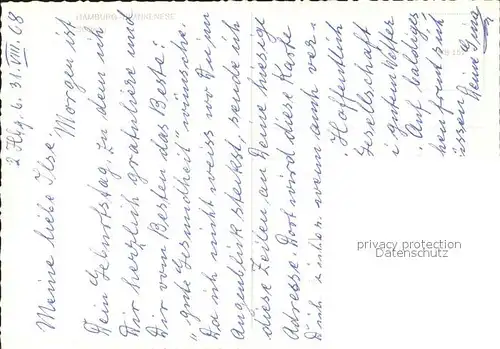 HAMBURG-BLANKENESE
2 Hbg. b. 31. VIII. 68
Meine liebe Ilse,
Morgen ist
Dein Geburtstag. Zu dem ich
Dir herzlich gratuliere und
Dir vom Besten das Beste:
"gute Gesundheit" wünsche.
Da ich nicht weiss wo Du im
Augenblick steckst, sende ich
diese Zeilen an Deine hiesige
Adresse. Dort wird diese Karte
Dich wenn auch ver-
Hoffentlich
Gesellschaft
gutem Wetter
Auf baldiges
Deine
privacy protection
Datenschutz